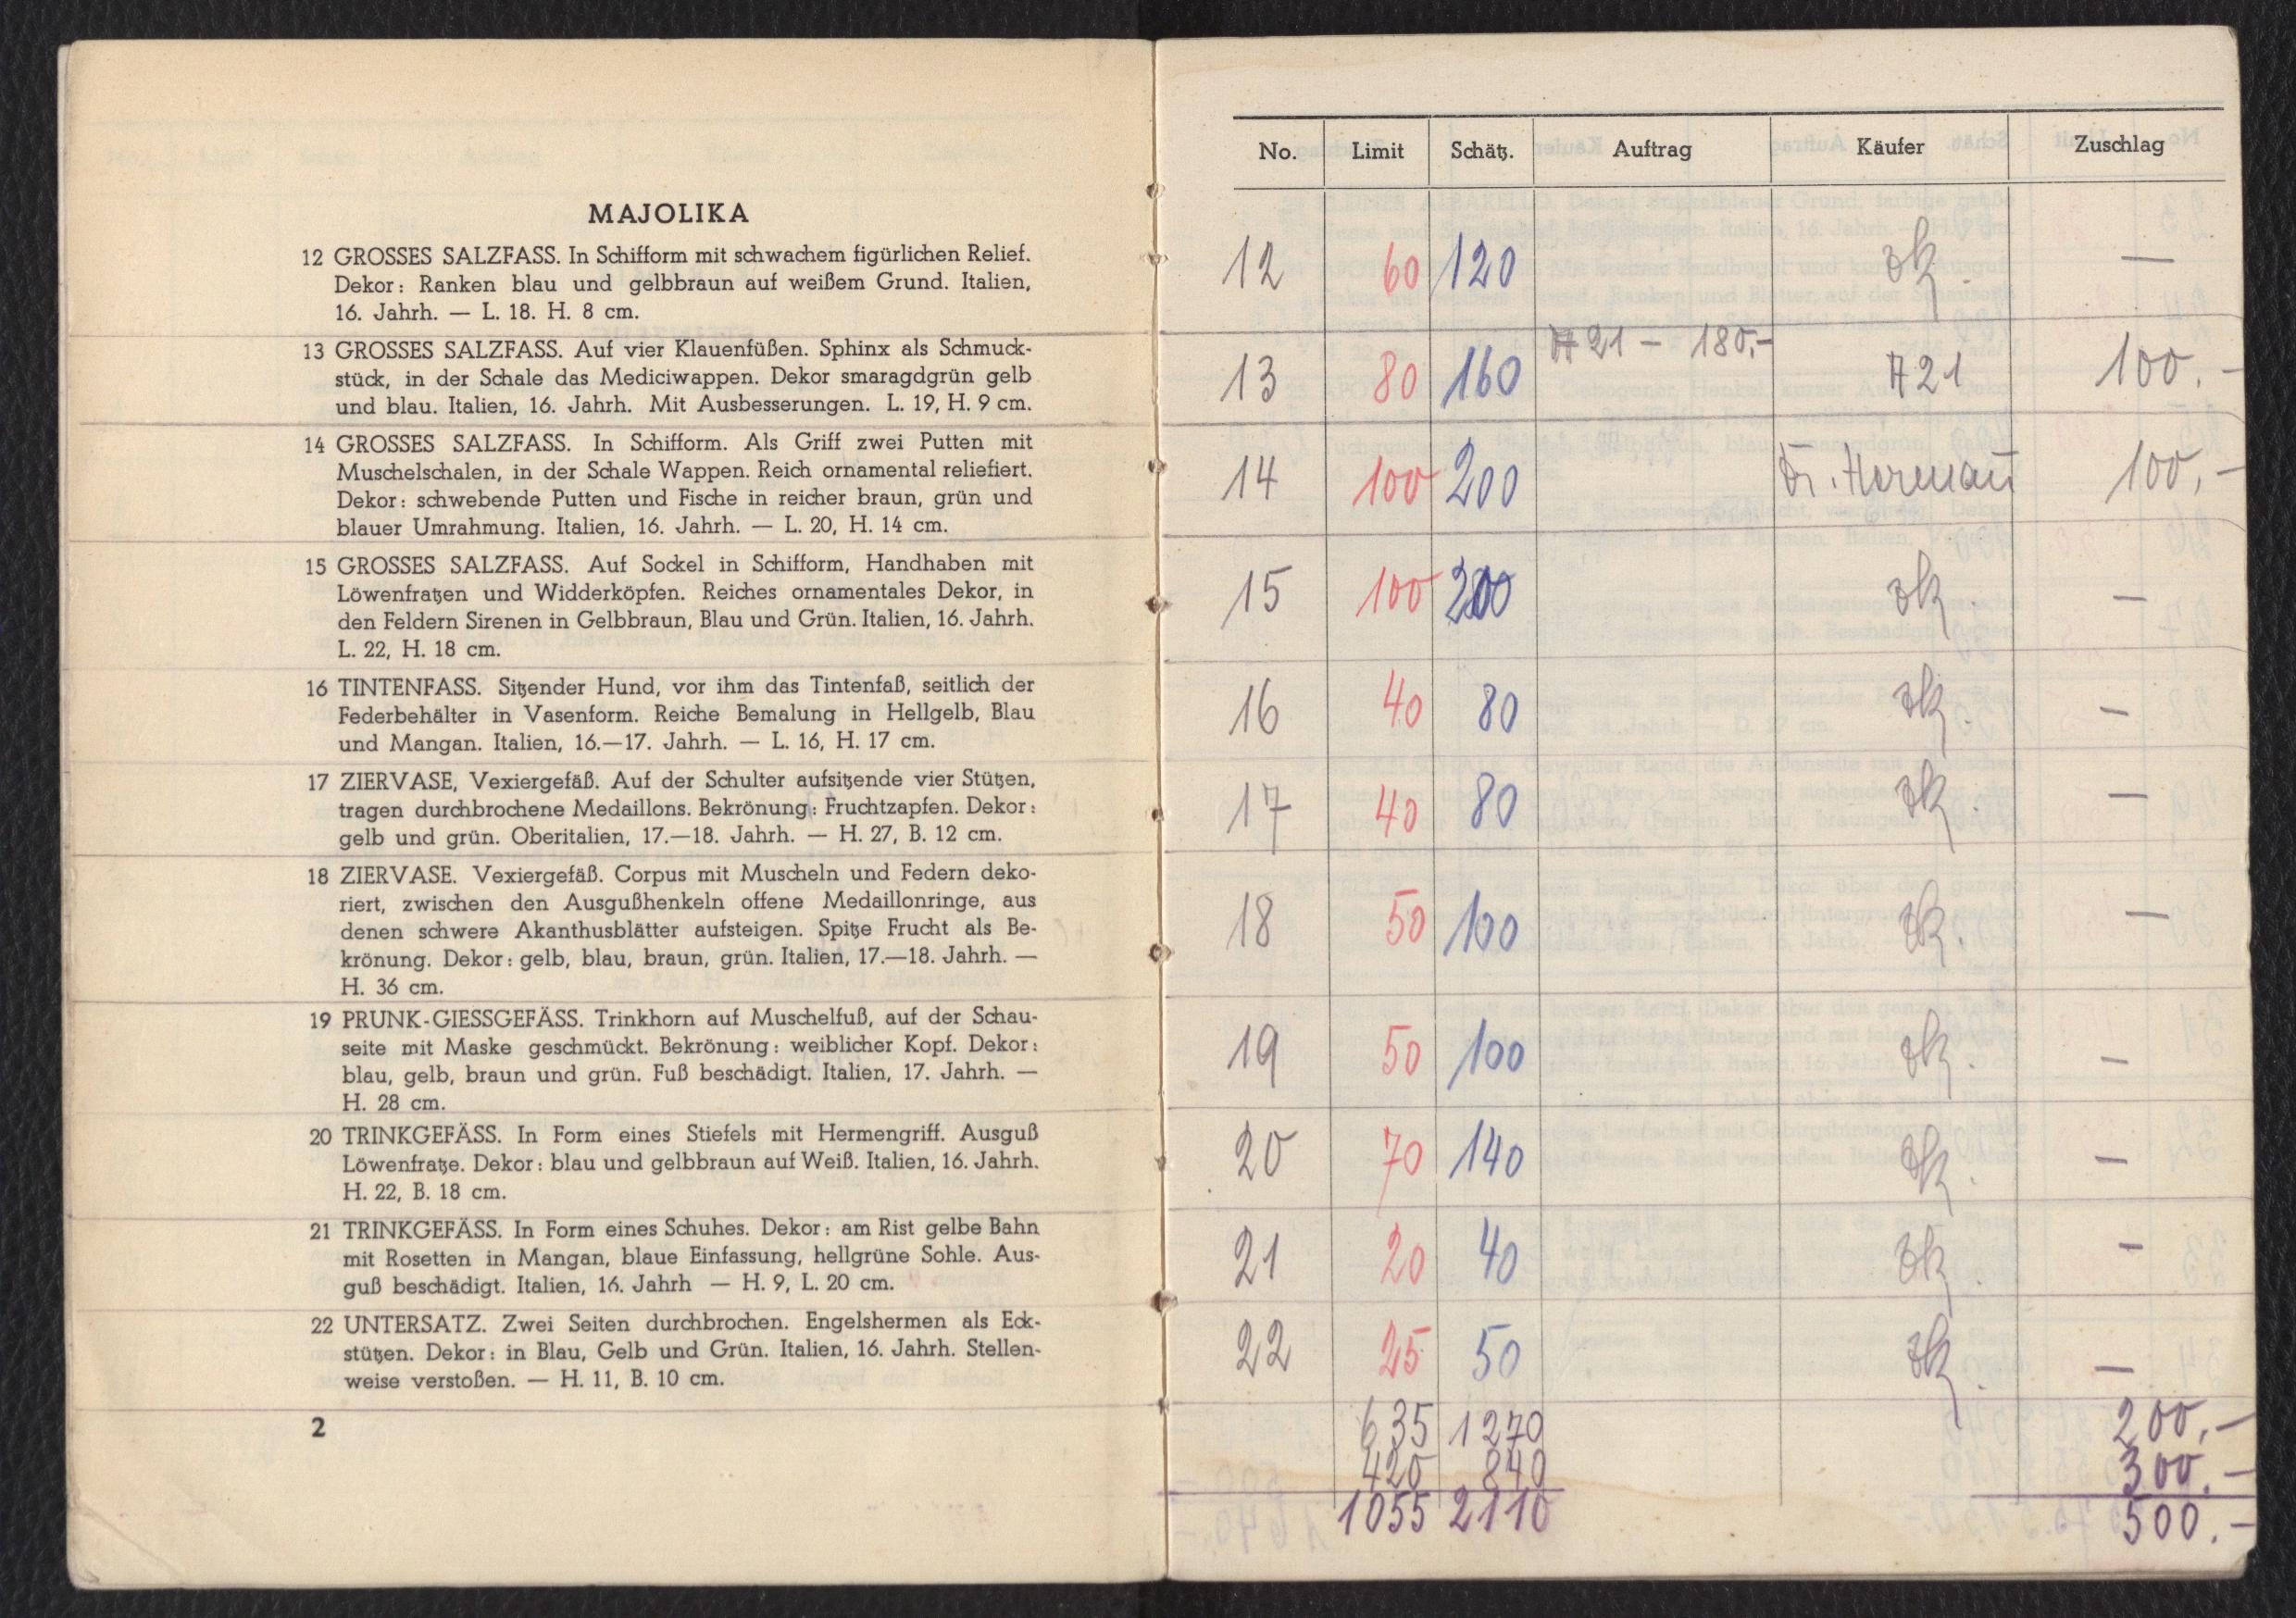 MAJOLIKA
12 GROSSES SALZFASS. In Schifform mit schwachem figürlichen Relief.
Dekor: Ranken blau und gelbbraun auf weißem Grund. Italien,
16. Jahrh. — L. 18. H. 8 cm.
13 GROSSES SALZFASS. Auf vier Klauenfüßen. Sphinx als Schmuck-
stück, in der Schale das Mediciwappen. Dekor smaragdgrün gelb
und blau. Italien, 16. Jahrh. Mit Ausbesserungen. L. 19, H. 9 cm.
14 GROSSES SALZFASS. In Schifform. Als Griff zwei Putten mit
Muschelschalen, in der Schale Wappen. Reich ornamental reliefiert.
Dekor: schwebende Putten und Fische in reicher braun, grün und
blauer Umrahmung. Italien, 16. Jahrh. — L. 20, H. 14 cm.
15 GROSSES SALZFASS. Auf Sockel in Schifform, Handhaben mit
Löwenfratzen und Widderköpfen. Reiches ornamentales Dekor, in
den Feldern Sirenen in Gelbbraun, Blau und Grün. Italien, 16. Jahrh.
L. 22, H. 18 cm.
16 TINTENFASS. Sitzender Hund, vor ihm das Tintenfaß, seitlich der
Federbehälter in Vasenform. Reiche Bemalung in Hellgelb, Blau
und Mangan. Italien, 16.—17. Jahrh. — L. 16, H. 17 cm.
17 ZIERVASE, Vexiergefäß. Auf der Schulter aufsitzende vier Stützen,
tragen durchbrochene Medaillons. Bekrönung: Fruchtzapfen. Dekor:
gelb und grün. Oberitalien, 17.—18. Jahrh. — H. 27, B. 12 cm.
18 ZIERVASE. Vexiergefäß. Corpus mit Muscheln und Federn deko-
riert, zwischen den Ausgußhenkeln offene Medaillonringe, aus
denen schwere Akanthusblätter aufsteigen. Spitze Frucht als Be-
krönung. Dekor: gelb, blau, braun, grün. Italien, 17.—18. Jahrh. —
H. 36 cm.
19 PRUNK-GIESSGEFÄSS. Trinkhorn auf Muschelfuß, auf der Schau-
seite mit Maske geschmückt. Bekrönung: weiblicher Kopf. Dekor:
blau, gelb, braun und grün. Fuß beschädigt. Italien, 17. Jahrh. —
H. 28 cm.
20 TRINKGEFÄSS. In Form eines Stiefels mit Hermengriff. Ausguß
Löwenfratze. Dekor: blau und gelbbraun auf Weiß. Italien, 16. Jahrh.
H. 22, B. 18 cm.
21 TRINKGEFÄSS. In Form eines Schuhes. Dekor: am Rist gelbe Bahn
mit Rosetten in Mangan, blaue Einfassung, hellgrüne Sohle. Aus-
guß beschädigt. Italien, 16. Jahrh — H. 9, L. 20 cm.
22 UNTERSATZ. Zwei Seiten durchbrochen. Engelshermen als Eck-
stützen. Dekor: in Blau, Gelb und Grün. Italien, 16. Jahrh. Stellen-
weise verstoßen. — H. 11, B. 10 cm.
2
No. Limit Schätz. Auftrag Käufer Zuschlag
12 60 120 zk. —
13 80 160 A 21 — 180,— A 21 100.—
14 100 200 100,—
15 100 200 zk. —
16 40 80 zk. —
17 40 80 zk. —
18 50 100 zk. —
19 50 100 zk. —
20 70 140 zk. —
21 20 40 zk. —
22 25 50 zk. —
635 1270 200,—
420 840 300.—
1055 2110 500.—